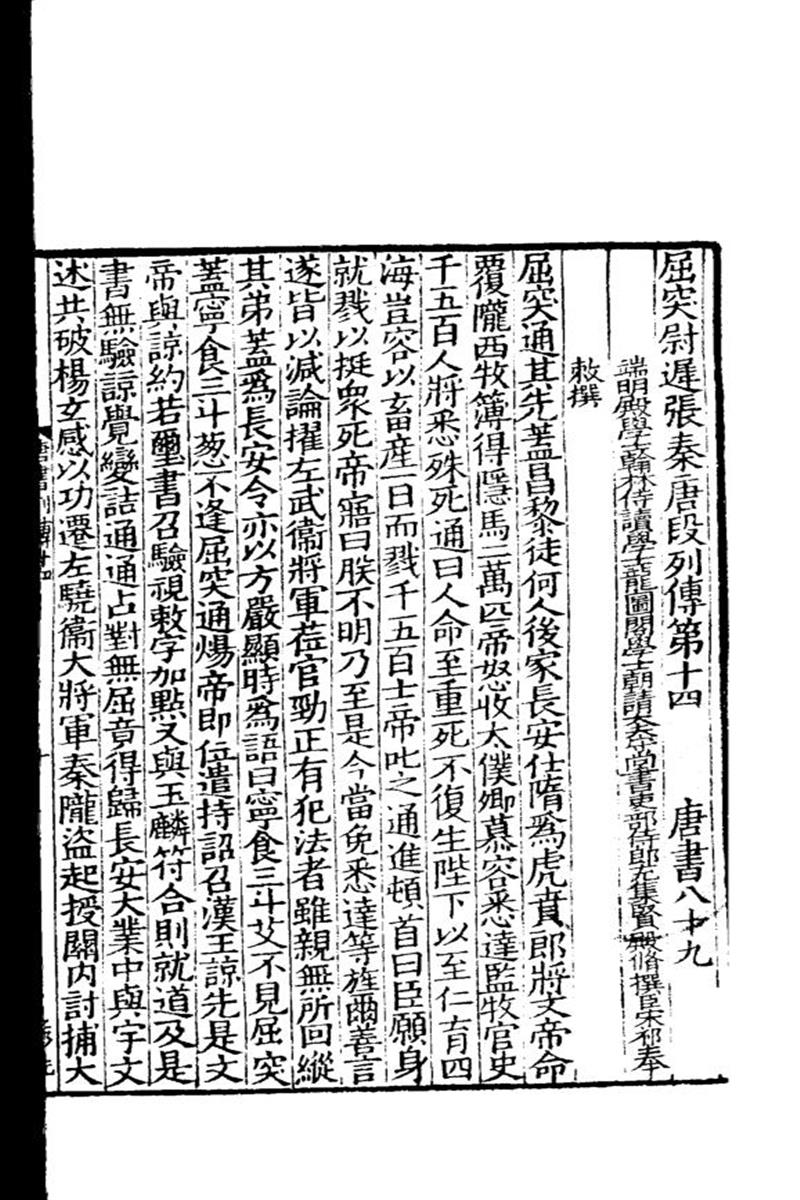 屈突尉遲張秦唐段列傳第十四　唐書八十九
端明殿學士翰林侍讀學士龍圖閣學士朝請大夫守尚書吏部侍郎充集賢殿脩撰臣宋祁奉
敕撰
屈突通其先蓋昌黎徒何人後家長安仕隋爲虎賁郎將文帝命
覆隴西牧簿得隱馬二萬匹帝怒收太僕卿慕容悉達監牧官史
千五百人將悉殊死通曰人命至重死不復生陛下以至仁育四
海豈容以畜産一日而戮千五百士帝叱之通進頓首曰臣願身
就戮以挺衆死帝寤曰朕不明乃至是今當免悉達等旌爾善言
遂皆以減論擢左武衞將軍莅官勁正有犯法者雖親無所回縱
其弟蓋爲長安令亦以方嚴顯時爲語曰寧食三斗艾不見屈突
蓋寧食三斗葱不逢屈突通煬帝即位遣持詔召漢王諒先是文
帝與諒約若璽書召驗視敕字加點又與玉麟符合則就道及是
書無驗諒覺變詰通通占對無屈竟得歸長安大業中與宇文
述共破楊玄感以功遷左驍衞大將軍秦隴盜起授關内討捕大
唐書列傳十四